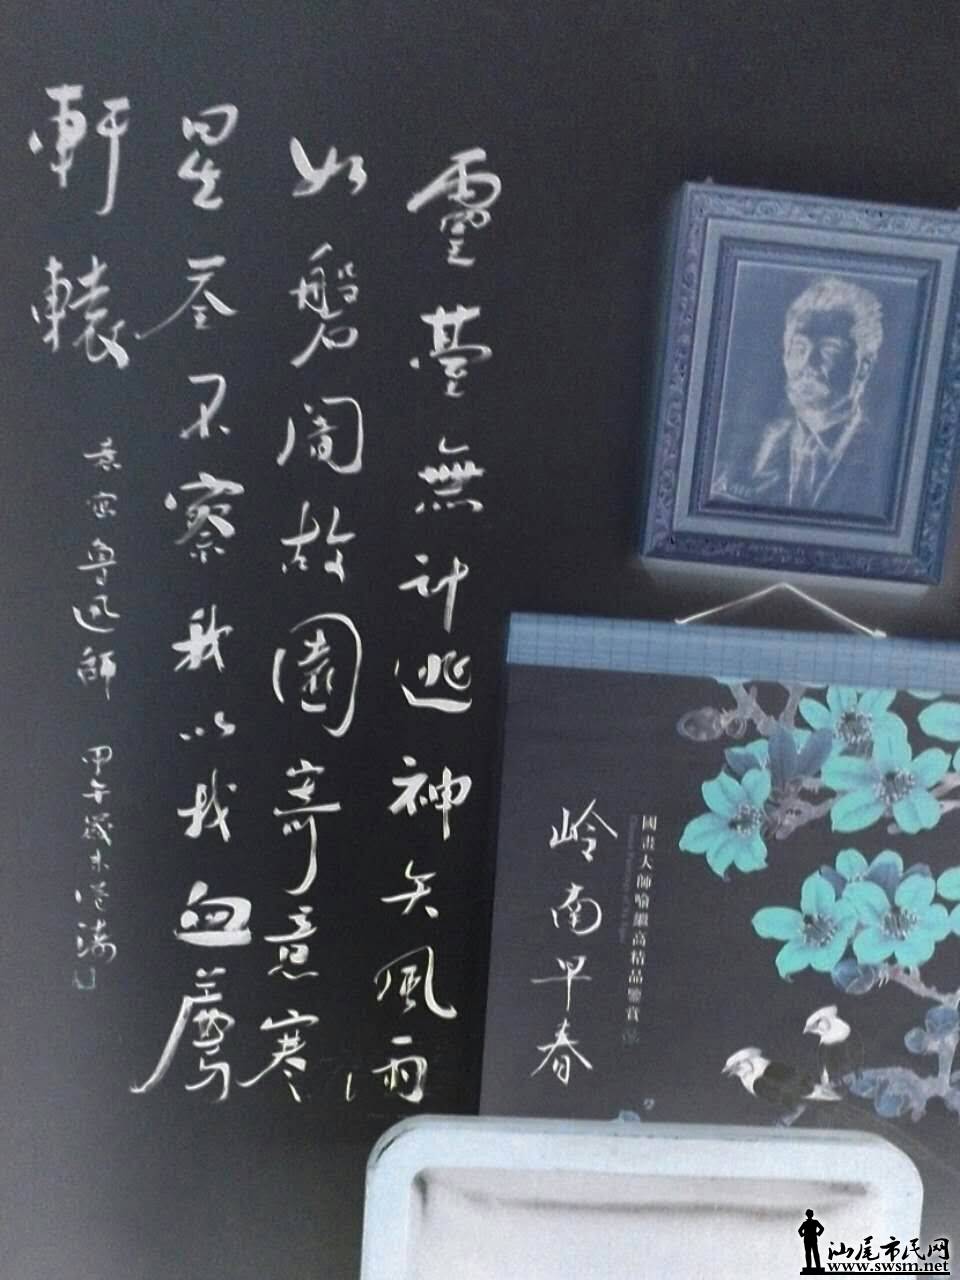 靈臺無計逃神矢風雨
如磐闇故園寄意寒
星荃不察我以我血薦
軒轅
寫魯迅師 甲午歲末
國畫大師喻繼高精品鑒賞
岭南早春
汕尾市民网
www.swsm.net